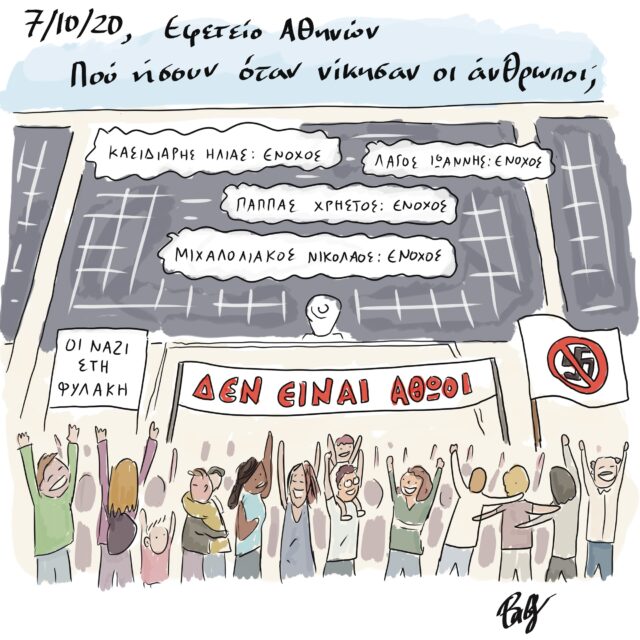 7/10/20, Εφετείο Αθηνών
Πού ήσουν όταν νίκησαν οι άνθρωποι;
ΚΑΣΙΔΙΑΡΗΣ ΗΛΙΑΣ: ΕΝΟΧΟΣ
ΛΑΓΟΣ ΙΩΑΝΝΗΣ: ΕΝΟΧΟΣ
ΠΑΠΠΑΣ ΧΡΗΣΤΟΣ: ΕΝΟΧΟΣ
ΜΙΧΑΛΟΛΙΑΚΟΣ ΝΙΚΟΛΑΟΣ: ΕΝΟΧΟΣ
ΟΙ ΝΑΖΙ
ΣΤΗ
ΦΥΛΑΚΗ
ΔΕΝ ΕΙΝΑΙ ΑΘΩΟΙ